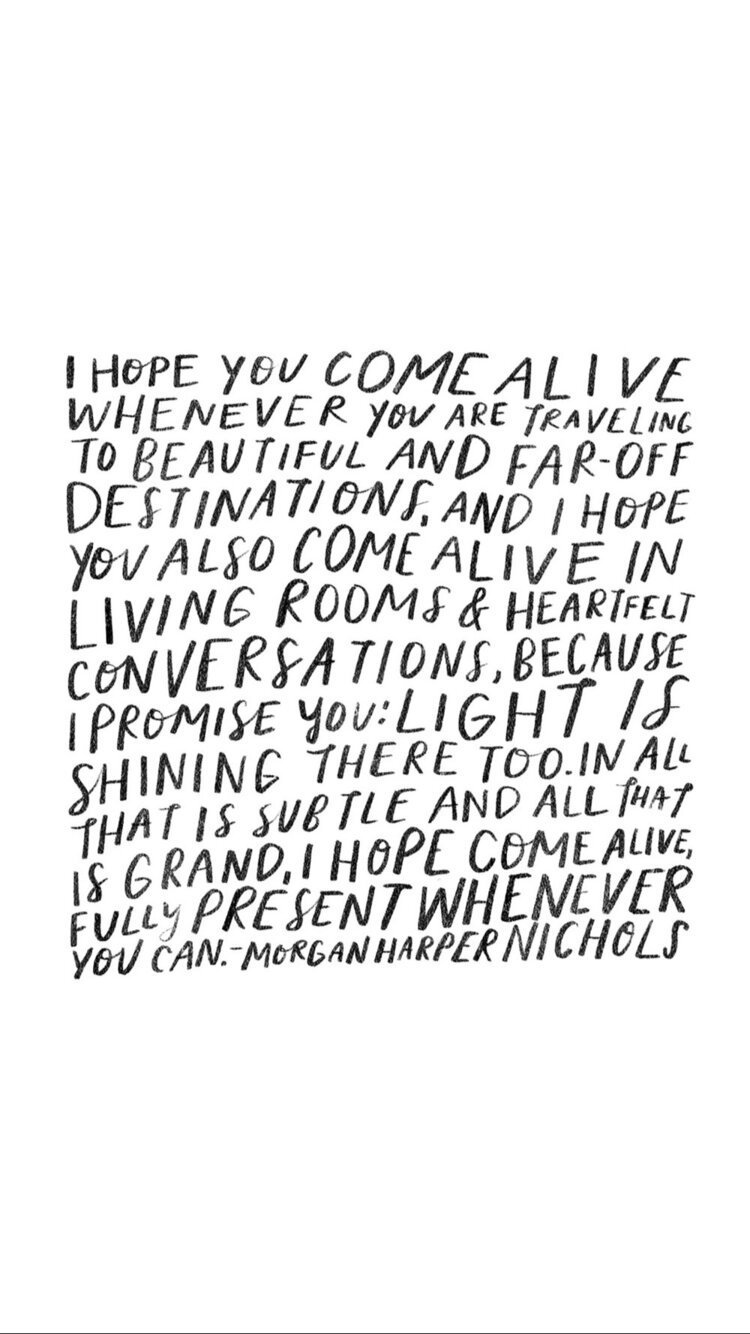 I HOPE YOU COME ALIVE
WHENEVER YOU ARE TRAVELING
TO BEAUTIFUL AND FAR-OFF
DESTINATIONS, AND I HOPE
YOU ALSO COME ALIVE IN
LIVING ROOMS & HEARTFELT
CONVERSATIONS, BECAUSE
I PROMISE YOU: LIGHT IS
SHINING THERE TOO. IN ALL
THAT IS SUBTLE AND ALL THAT
IS GRAND, I HOPE COME ALIVE,
FULLY PRESENT WHENEVER
YOU CAN.-MORGAN HARPER NICHOLS